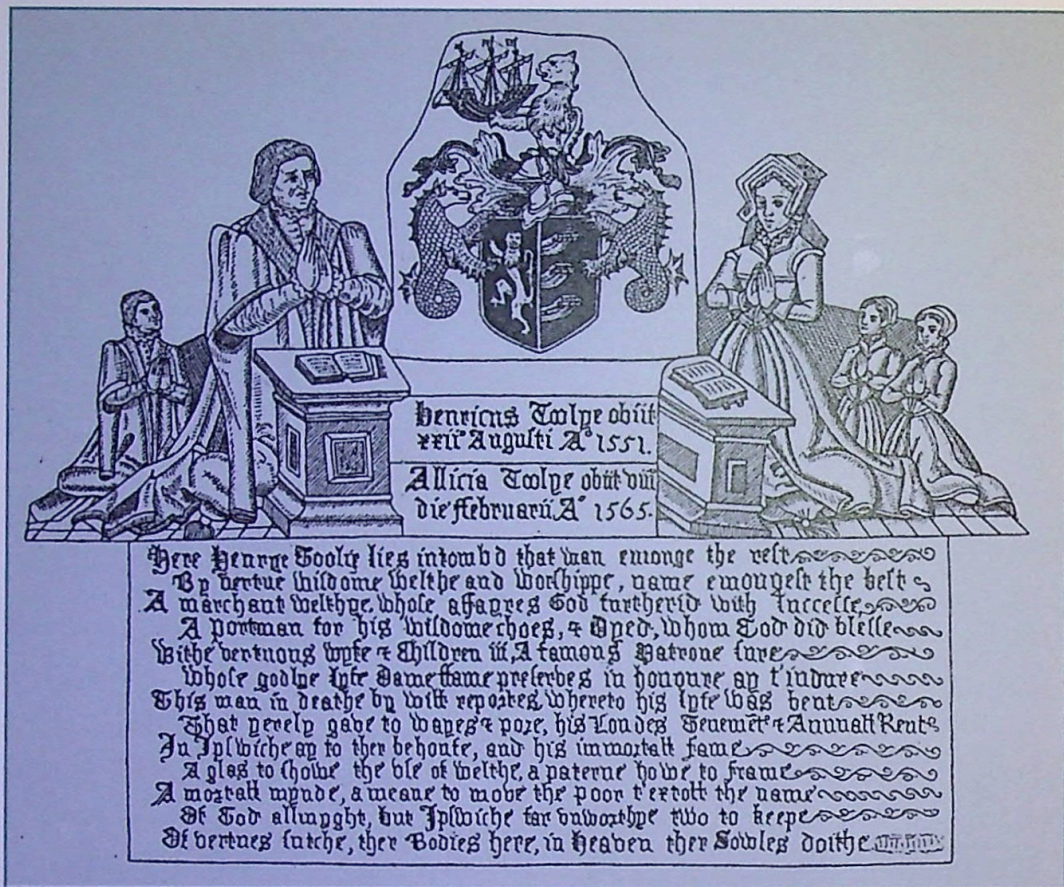 Henricus Toolye obiit
xxii° Augusti A° 1551.
Allicia Toolye obiit viii
die ffebruarii A° 1565.
Here Henrye Toolie lies intomb'd that man emonge the rest
By vertue wisdome welthe and worshippe, name emongest the best
A marchant welthye, whose affayres God furtherid with successe
A Portman for his wisdome choes, & Dyed, whom God did blesse
Withe vertuous wyfe & Children iii, A famous Patrone sure
Whose godlye lyfe Dame ffame preserves in honoure ay t'indure
This man in deathe by will reportes whereto his lyfe was bent
That yerely gave to wayes & pore, his Londes Tenemēt & Annuall Rent
In Ipswiche ay to ther behoufe, and his immortall fame
A glas to showe the use of welthe, a paterne howe to frame
A mortall mynde, a meane to move the poor t'extoll the name
Of God allmyght, but Ipswiche far unworthye two to keepe
Of vertues sutche, ther Bodies here, in Heaven ther Sowles doithe